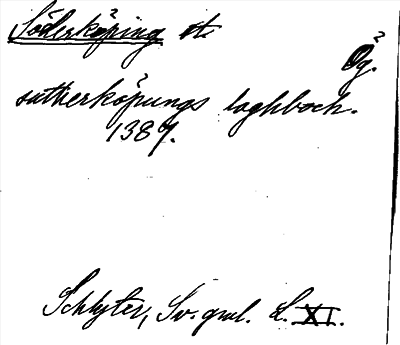 Söderköping st.
Ög.
sutherköpungs laghboch.
1387.
Schlyter, Sv. gml. L. XI.